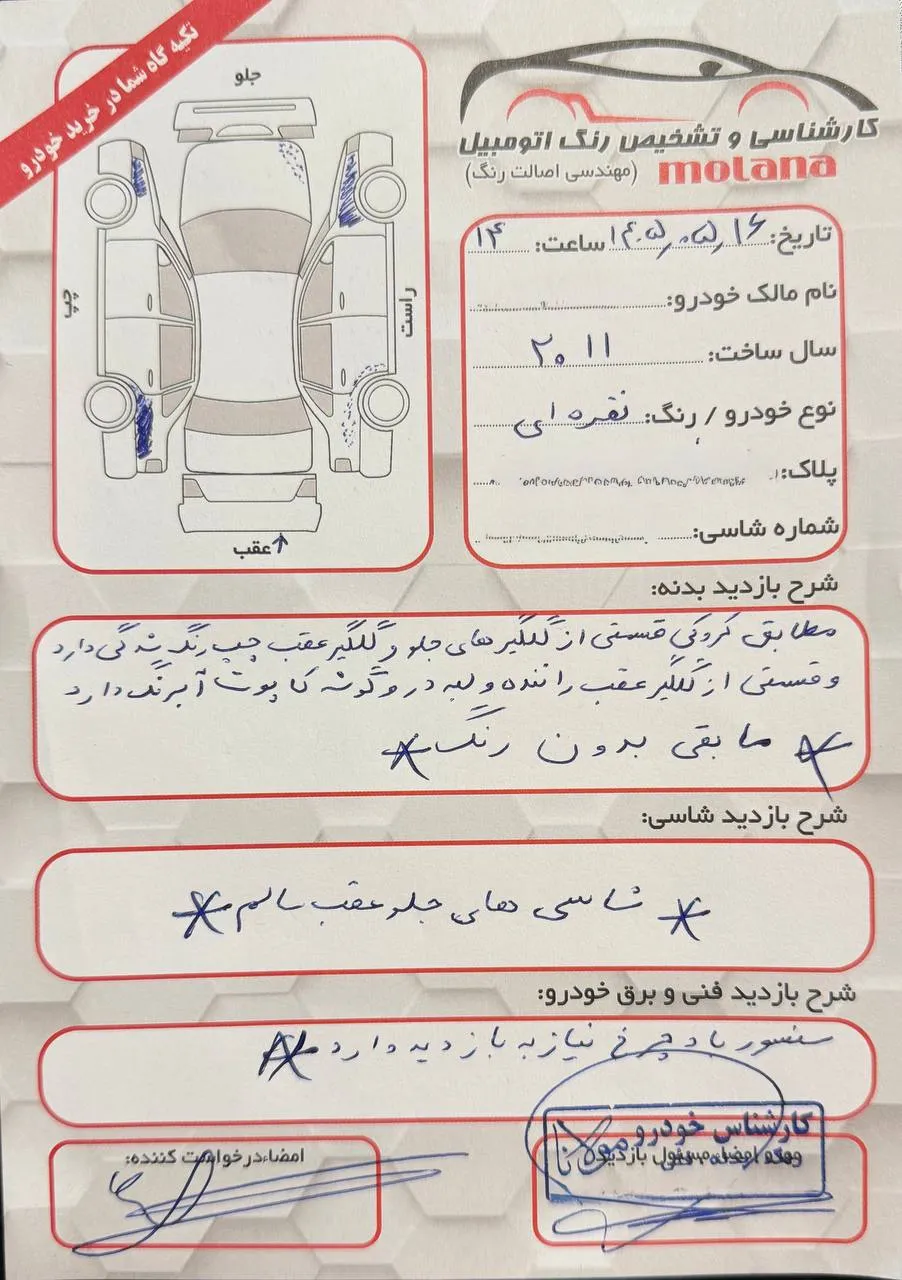 تکیه گاه شما در خرید خودرو
جلو
چپ
راست
عقب
کارشناسی و تشخیص رنگ اتومبیل
molana (مهندسی اصالت رنگ)
تاریخ: ۱۴۰۵٫۰۵٫۱۶ ساعت: ۱۴
نام مالک خودرو:
سال ساخت: ۲۰۱۱
نوع خودرو / رنگ: نقره ای
پلاک:
شماره شاسی:
شرح بازدید بدنه:
مطابق کروکی قسمتی از گلگیر های جلو و گلگیر عقب چپ رنگ شدگی دارد
و قسمتی از گلگیر عقب راننده و لبه در و گوشه کاپوت آبرنگ دارد
* مابقی بدون رنگ *
شرح بازدید شاسی:
* شاسی های جلو عقب سالم *
شرح بازدید فنی و برق خودرو:
سنسور باد چرخ نیاز به بازدید دارد *
کارشناس خودرو
مولانا
مهر و امضاء مسئول بازدید
امضاء درخواست کننده: